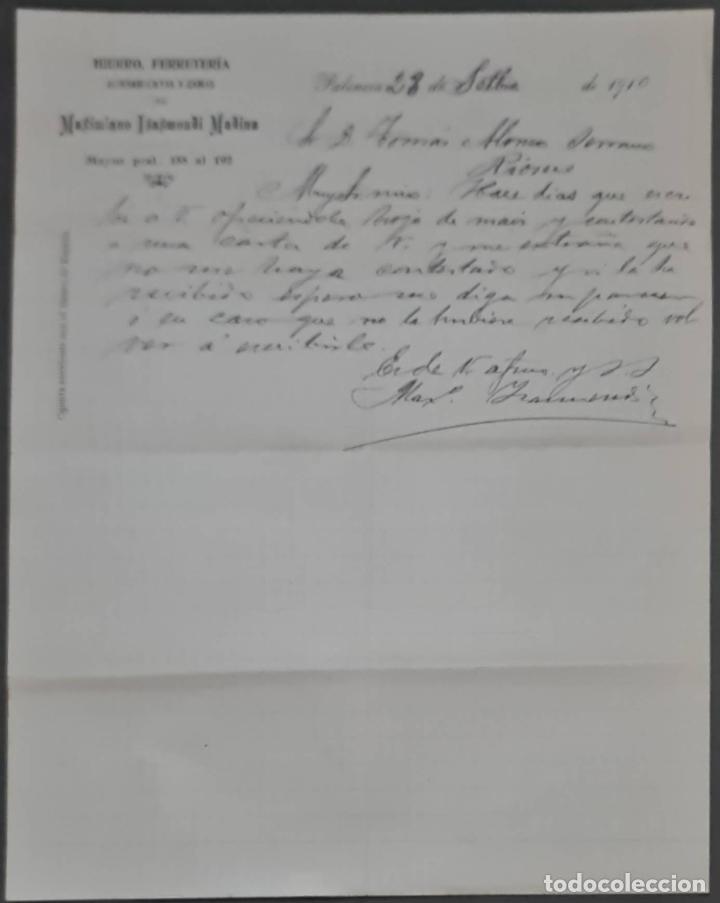 HIERRO, FERRETERÍA
Maximiano Izarmendi Medina
Mayor pral. 188 al 192
Palencia 28 de Setbre de 1910
Sr. D. Tomás Alonso Serrano
Muy Sr. mio: Hace dias que escri
bi a V. ofreciendole hoja de maiz y contestando
a una carta de V. y me extraña que
no me haya contestado y si la ha
recibido espero me diga su parecer
ó en caso que no la hubiera recibido vol
ver á escribirle.
Es de V. afmo. y S. S.
Max. Izarmendi
todocoleccion.net